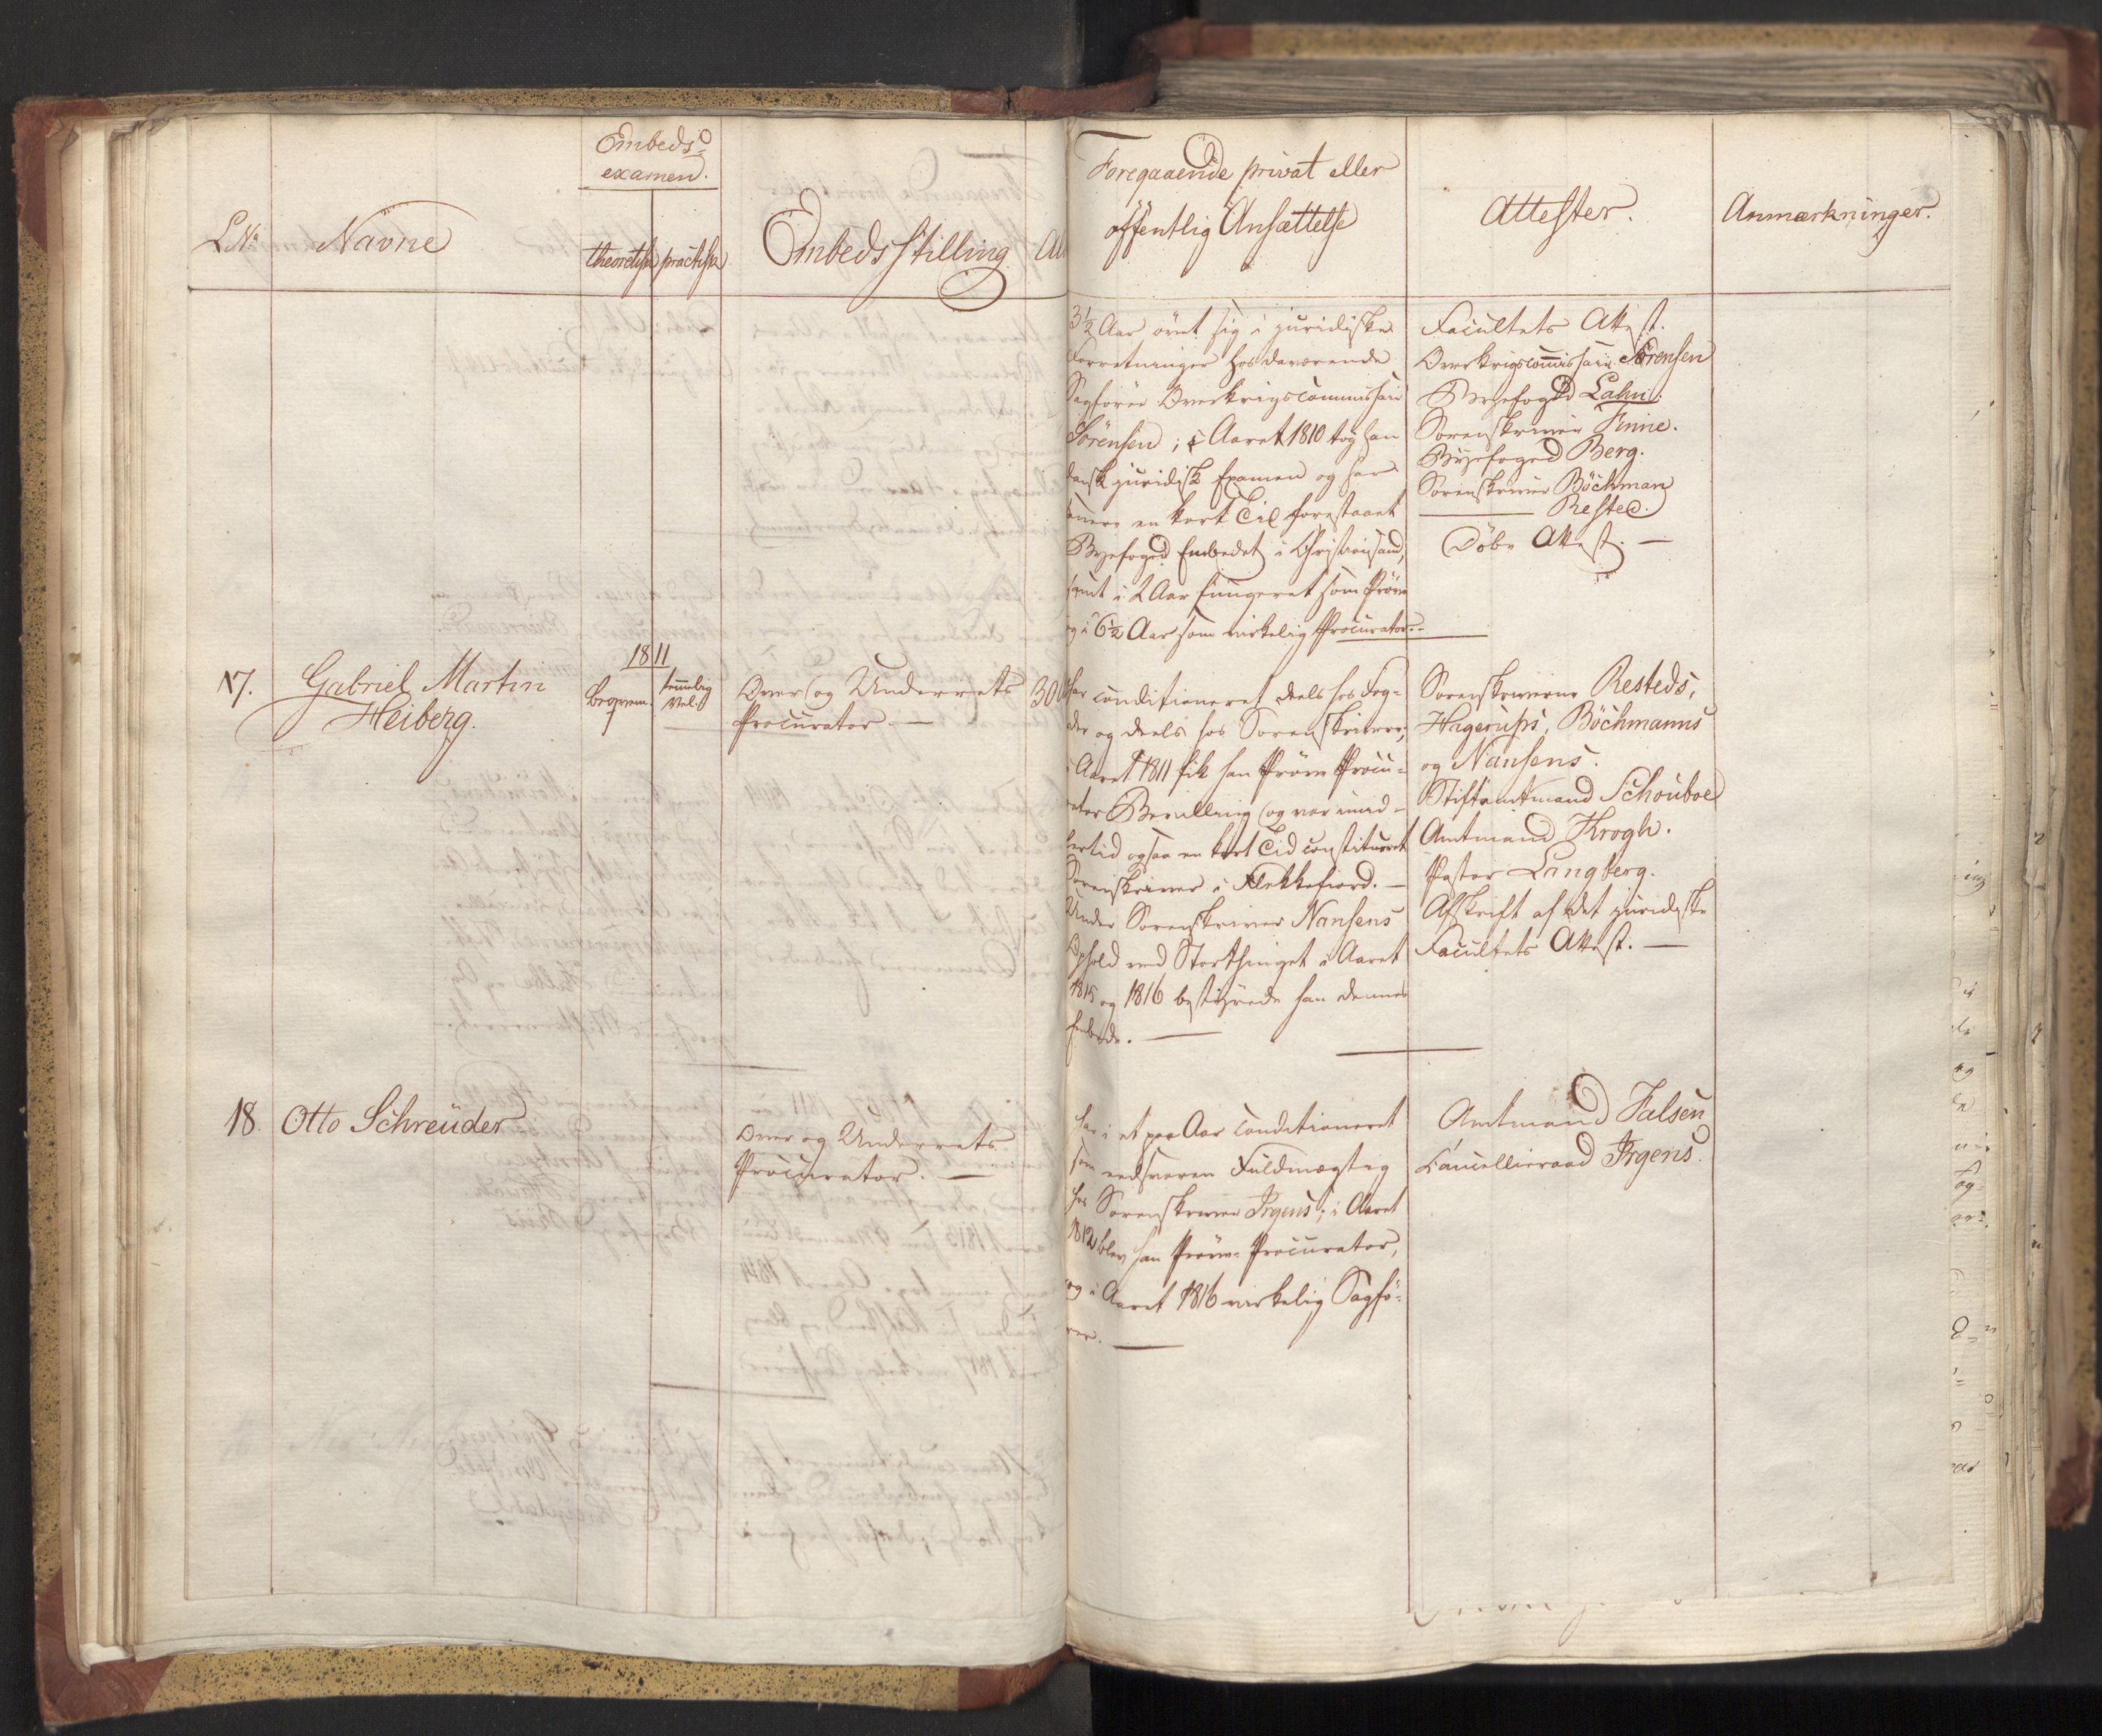 Embeds-
examen.
L.No
Navne
theoretisk
practisk
Embedsstilling
Al
Foregaaende privat eller
offentlig Ansættelse
Attester.
Anmærkninger.
3½ Aar øvet sig i juridiske
Forretninger hos daværende
Sagfører Overkrigscommissair
Sörensen; i Aaret 1810 tog han
dansk juridisk Examen og har
senere en kort Tid forestaaet
Byefoged Embedet i Christiansand,
samt i 2 Aar fungeret som Prøve
og i 6½ Aar som virkelig Procurator.
Facultets Attest.
Overkrigscommissair Sörensen
Byefoged Lahn.
Sorenskriver Finne.
Byefoged Berg.
Sorenskriver Böchman
Rested.
Døbe Attest. —
17.
Gabriel Martin
Heiberg.
1811
beqvem.
temmelig
vel.
Over og Underrets
Procurator. —
30
har conditioneret deels hos Fog-
der og deels hos Sorenskrivere;
i Aaret 1811 fik han Prøve Procu-
rator Bevilling og var imid-
lertid ogsaa en kort Tid constitueret
Sorenskriver i Flekkefiord. —
Under Sorenskriver Nansens
Ophold ved Storthinget i Aaret
1815 og 1816 bestyrede han dennes
Embede. —
Sorenskriverne Resteds,
Hagerups, Böchmanns
og Nansens.
Stiftamtmand Schouboe
Amtmand Krogh.
Pastor Langberg.
Afskrift af det juridiske
Facultets Attest. —
18.
Otto Schreuder
Over og Underrets
Procurator. —
har i et par Aar conditioneret
som eedsvoren Fuldmægtig
hos Sorenskriver Irgens; i Aaret
1812 blev han Prøve-Procurator,
og i Aaret 1816 virkelig Sagfø-
rer. —
Amtmand Falsen
Cancellieraad Irgens.